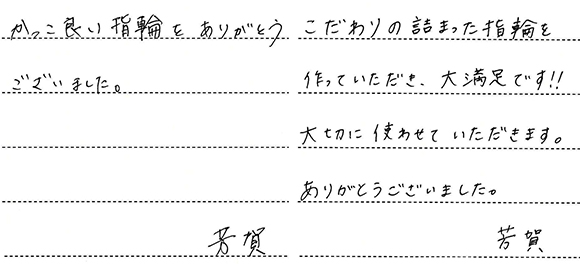 かっこ良い指輪をありがとう
ございました。
芳賀
こだわりの詰まった指輪を
作っていただき、大満足です!!
大切に使わせていただきます。
ありがとうございました。
芳賀